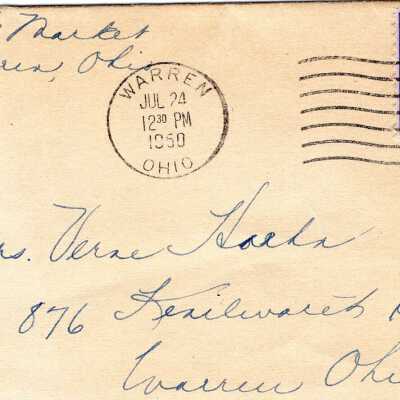 Market
ren, Ohio
WARREN
JUL 24
12 30 PM
1950
OHIO
rs. Verne Hoehn
876 Kenilworth
Warren Ohi